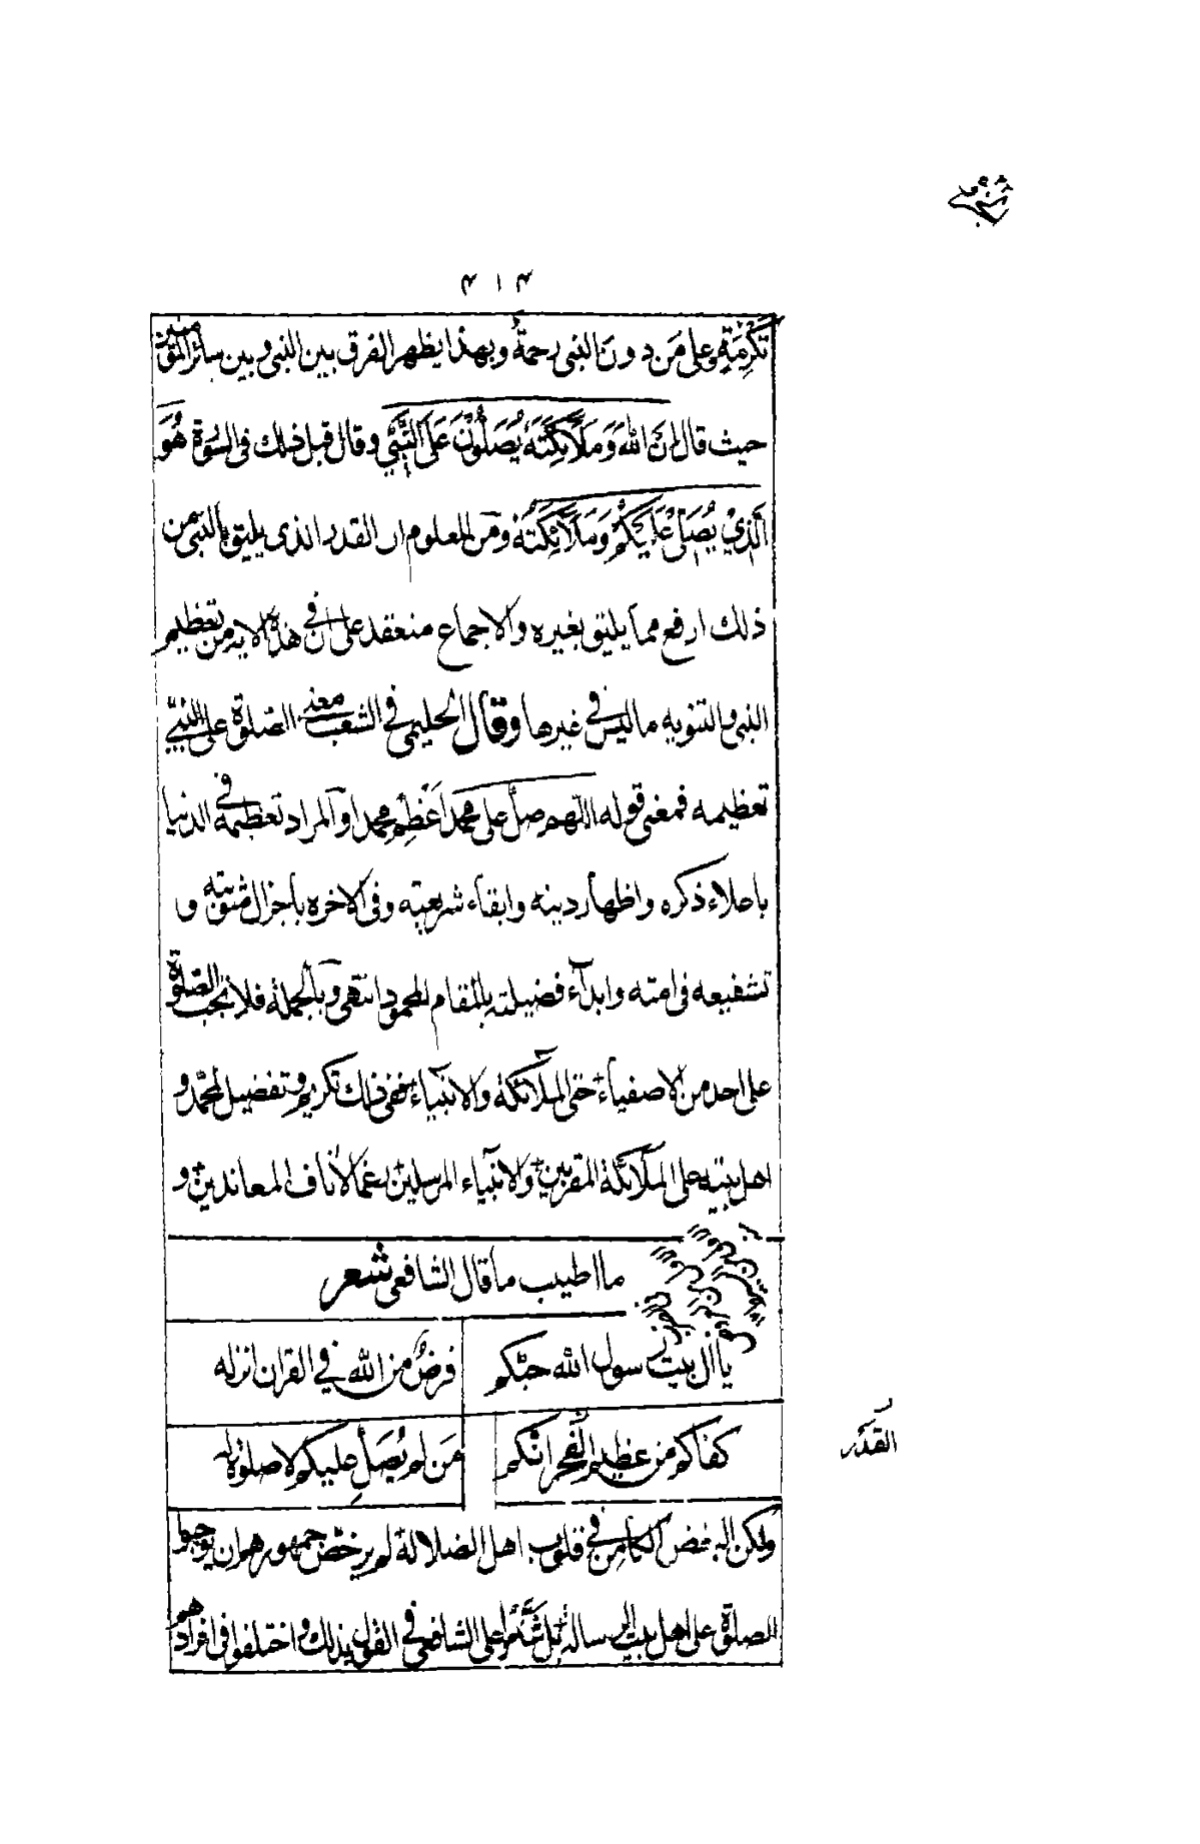 ۴۱۴
تكرمةٍ وعلى مَن دون النبى رحمةٌ وبهذا يظهر الفرق بين النبى وبين سائر المؤمنين
حيث قال اِنَّ اللهَ وَمَلَآئِكَتَهٗ يُصَلُّوْنَ عَلَى النَّبِيِّ وقال قبل ذلك فى السورة هُوَ
الَّذِيْ يُصَلِّيْ عَلَيْكُمْ وَمَلَآئِكَتُهٗ ومن المعلوم ان القدر الذى يليق بالنبى من
ذلك ارفع مما يليق بغيره والاجماع منعقد على ان فى هذه الاية من تعظيم
النبى والتنويه ما ليس فى غيرها وقال الحليمى فى الشعب معنى الصلوة على النبىّ
تعظيمه فمعنى قوله اللهم صلّ على محمد اَعْظِمْ محمدا والمراد تعظيمه فى الدنيا
باعلاء ذكره واظهار دينه وابقاء شريعته وفى الاخرة باجزال مثوبته و
تشفيعه فى امته وابدآء فضيلته بالمقام المحمود انتهى وبالجملة فلا تجب الصلوة
على احد من الاصفياء حتى الملآئكة والانبياء ففى ذلك تكريم وتفضيل لمحمّد و
اهل بيته على الملآئكة المقربين والانبياء المرسلين رغما لاناف المعاندين و
ما اطيب ما قال الشافعى شعر
يا آل بيت رسول الله حبّكم فرضٌ من الله فى القران انزله
كفاكم من عظيم الفخر انكم مَن لم يُصَلِّ عليكم لا صلوة له
القدر
ولكن البغض الكامن فى قلوب اهل الضلالة لم يرخّص جمهورهم ان يوجبوا
الصلوة على اهل بيت الرسالة بل شنّعوا على الشافعى فى القول بذلك واختلفوا فى افرادهم